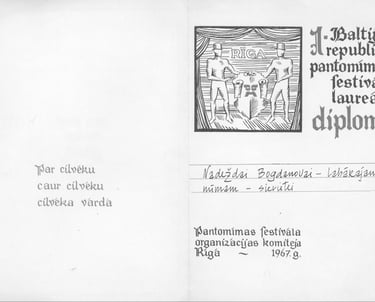 Par cilvēku
caur cilvēku
cilvēka vārdā
RĪGA
I Baltij
republi
pantomīm
festivā
laureā
diplom
Nadeždai Bogdanovai - labākajam
mīmam - sievietei
Pantomīmas festivāla
organizācijas komiteja
Rīgā — 1967. g.